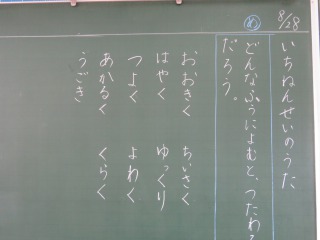 8/28
いちねんせいのうた
め
どんなふうによむと、つたわる
だろう。
おおきく ちいさく
はやく ゆっくり
つよく よわく
あかるく くらく
うごき